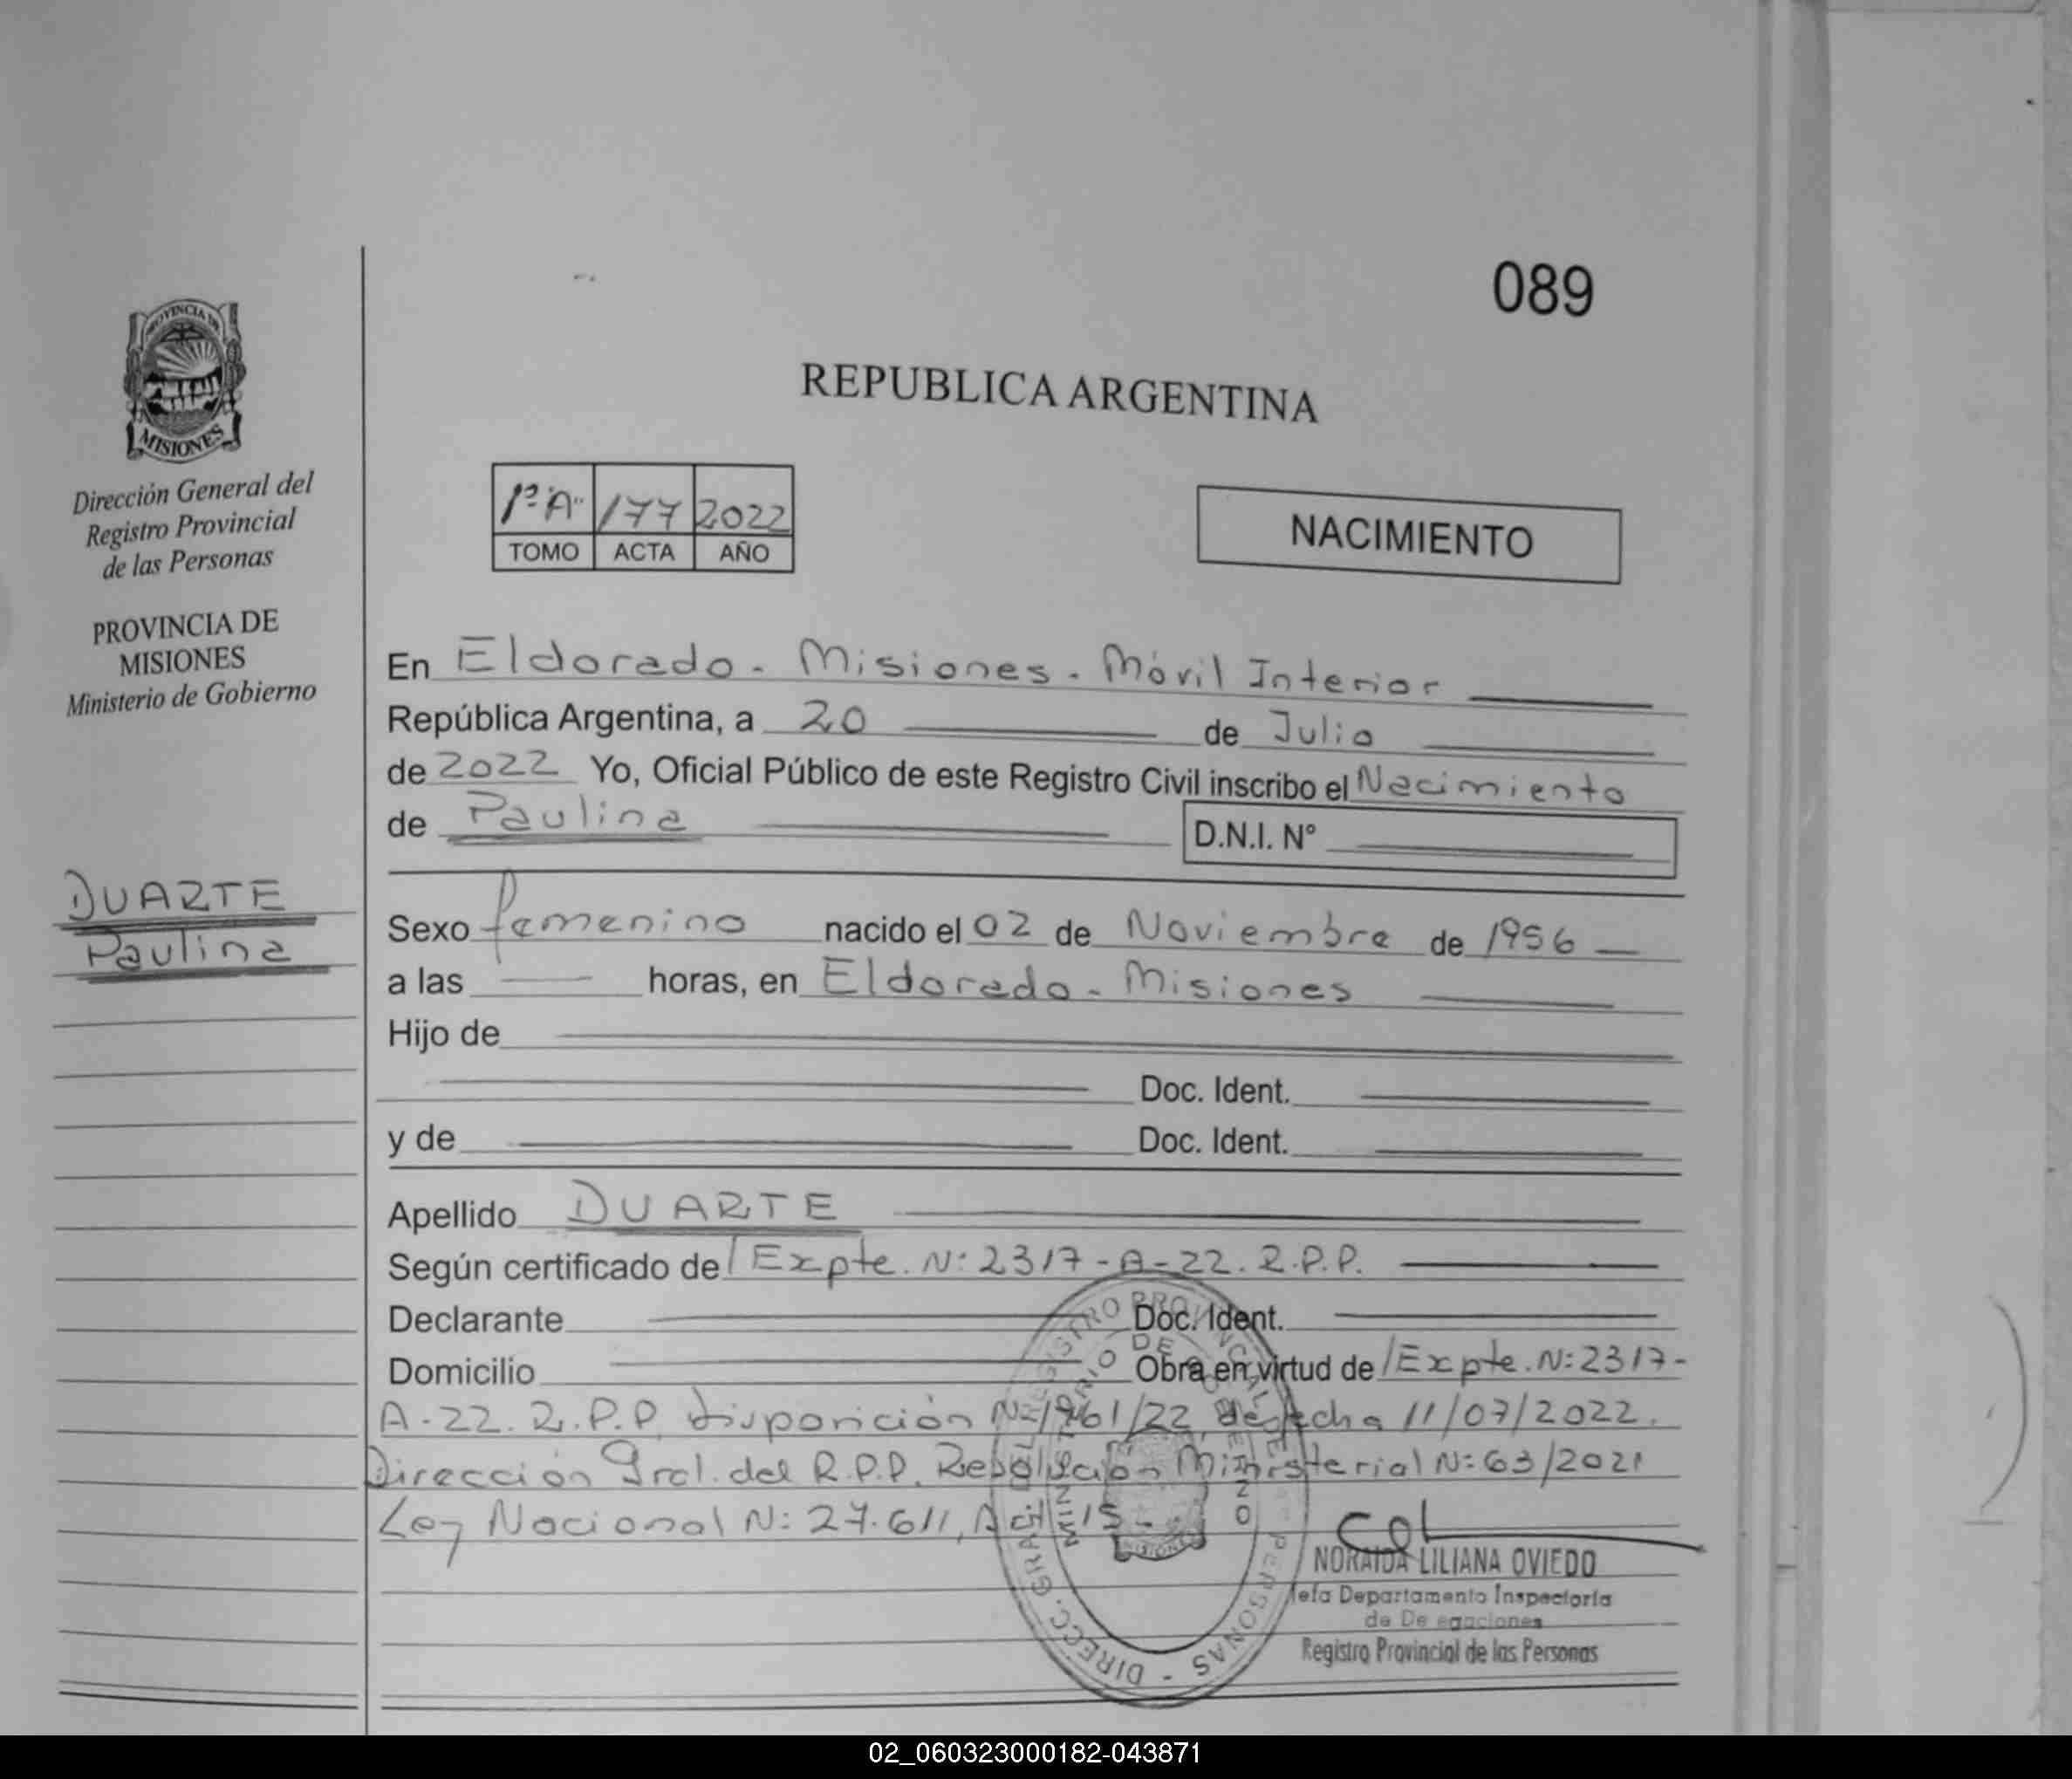 089
REPUBLICA ARGENTINA
PROVINCIA DE
MISIONES
Dirección General del
Registro Provincial
de las Personas
PROVINCIA DE
MISIONES
Ministerio de Gobierno
DUARTE
Paulina
1º "A" 177 2022
TOMO ACTA AÑO
NACIMIENTO
En Eldorado - Misiones - Móvil Interior
República Argentina, a 20 de Julio
de 2022 Yo, Oficial Público de este Registro Civil inscribo el Nacimiento
de Paulina D.N.I. Nº
Sexo femenino nacido el 02 de Noviembre de 1956
a las horas, en Eldorado - Misiones
Hijo de
Doc. Ident.
y de Doc. Ident.
Apellido DUARTE
Según certificado de / Expte. N: 2317-A-22. R.P.P.
Declarante Doc. Ident.
Domicilio Obra en virtud de / Expte. N: 2317-
A-22. R.P.P. Disposición N: 1961/22, de fecha 11/07/2022.
Dirección Gral. del R.P.P. Resolución Ministerial N: 63/2021
Ley Nacional N: 27.611, Art. 15-.
NORAIDA LILIANA OVIEDO
Jefa Departamento Inspectoría
de De egaciones
Registro Provincial de las Personas
DIRECC. GRAL. DEL REGISTRO PROVINCIAL DE LAS PERSONAS -
MINISTERIO DE GOBIERNO
MISIONES
02_060323000182-043871